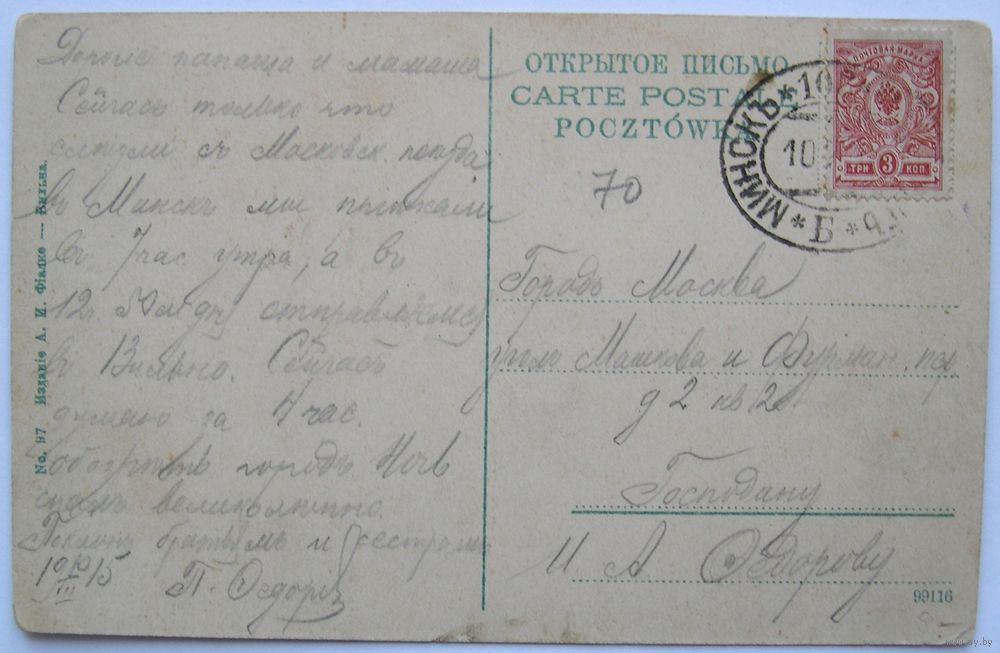 папаша и мамаша
Сейчасъ только что
съ Московск. поезда
въ Минскъ мы приехали
въ 7 час утра, а въ
12 ч 50 м дня отправляемся
въ Вильно. Сейчасъ
думаю за 4 час.
обозреть городъ. Ночь
спалъ великолепно.
Поклонъ братьямъ и сестрамъ
10 10/VIII 15 П. Федоровъ
No. 97 Изданіе А. И. Фіалко — Вильна.
ОТКРЫТОЕ ПИСЬМО
CARTE POSTALE
POCZTÓWKA
70
МИНСКЪ * 10
10
* Б *
ПОЧТОВАЯ МАРКА
ТРИ 3 КОП
Городъ Москва
уголъ Машкова и Фурман. пер
д 2 кв 20
Господину
И. А. Федорову
99116